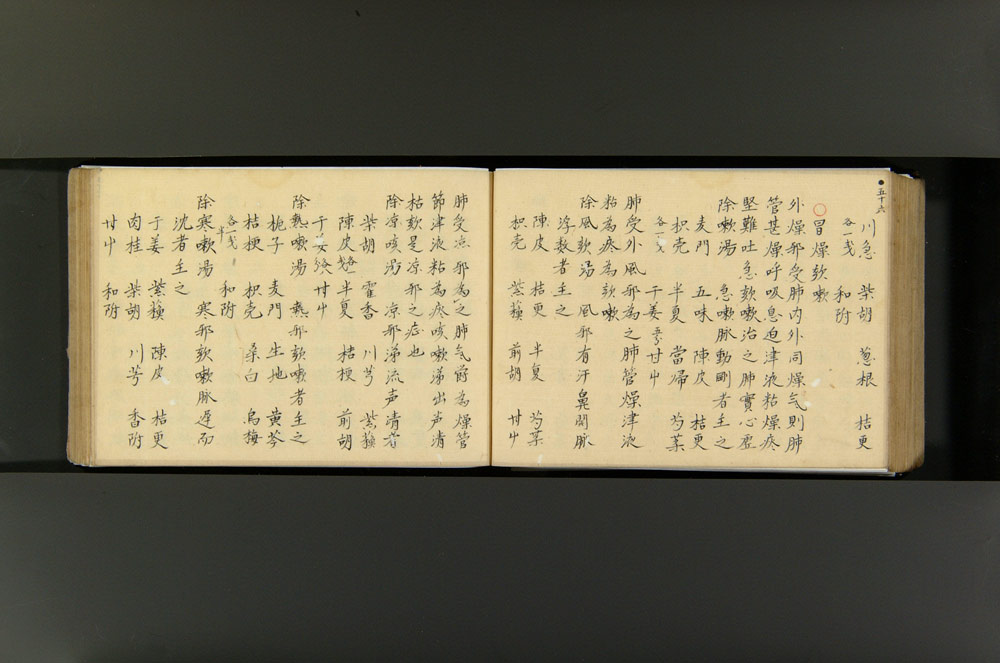 五十六
川急 柴胡 葱根 桔更
各一戔 和附
冒燥欬嗽
外燥邪受肺内外同燥气則肺
管甚燥呼吸息迫津液粘燥疼
堅難吐急欬嗽治之肺實心虚
除嗽湯 急嗽脈動剛者主之
麦門 五味 陳皮 桔更
枳壳 半夏 當帰 芍薬
各一戔 干姜 甘中
肺受外風邪為之肺管燥津液
粘為疼為欬嗽
除風欬湯 風邪有汗鼻閉脈
浮数者主之
陳皮 桔更 半夏 芍薬
枳壳 紫蘓 前胡 甘中
肺受凉邪為之肺气欝為燥管
節津液粘為疼咳嗽涕出声清
枯欬是凉邪之症也
除凉咳湯 凉邪涕流声清者
柴胡 霍香 川芎 紫蘓
陳皮各一戔 半夏 桔梗 前胡
干姜 甘中
除熱嗽湯 熱邪欬嗽者主之
梔子 麦門 生地 黄芩
桔梗 枳壳 桑白 烏梅
各一戔半 和附
除寒嗽湯 寒邪欬嗽脈遅而
沈者主之
干姜 紫蘓 陳皮 桔更
肉桂 柴胡 川芎 香附
甘中 和附